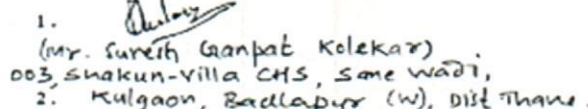 1.
(Mr. Suresh Ganpat Kolekar)
003, Shakun-Villa CHS, Sane wadi,
2. Kulgaon, Badlapur (W), Dist Thane